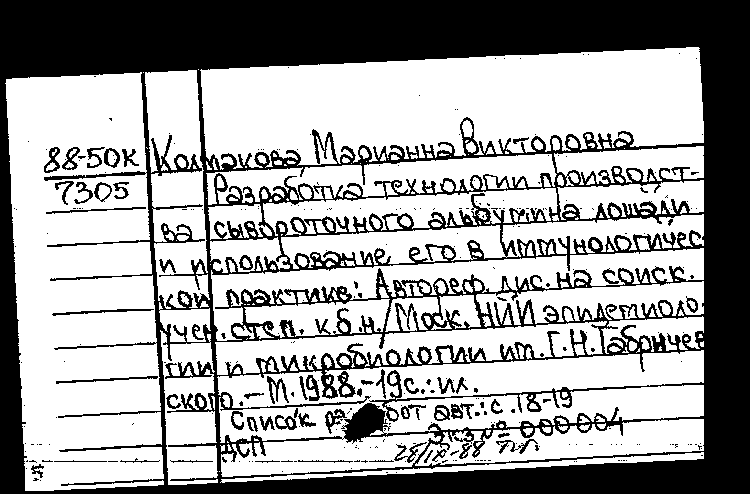 88-50к
7305
Колмакова, Марианна Викторовна
Разработка технологии производст-
ва сывороточного альбумина лошади
и использование его в иммунологичес-
кой практике: Автореф. дис. на соиск.
учен. степ. к.б.н./ Моск. НИИ эпидемиоло-
гии и микробиологии им. Г.Н. Габричев
ского. - М. 1988. - 19с.: ил.
Список работ авт.: с. 18-19
Экз № 000004
ДСП
28/IX-88